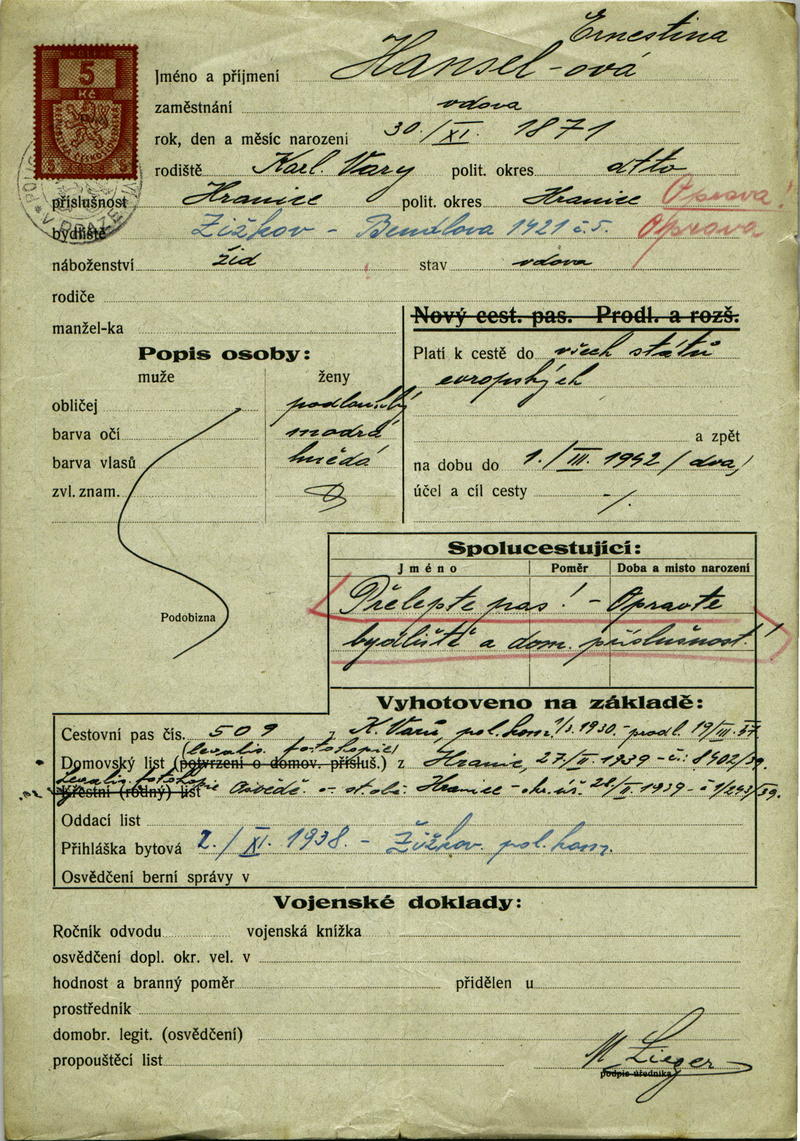 Ernestina
Jméno a příjmení Hansel-ová
zaměstnání vdova
rok, den a měsíc narozeni 30./XI. 1871
rodiště Karl. Vary polit. okres dtto
příslušnost Hranice polit. okres Hranice Oprava!
bydliště Žižkov - Bendlova 1421 č. 5. Oprava
náboženství žid stav vdova
rodiče
manžel-ka
Nový cest. pas. Prodl. a rozš.
Popis osoby:
muže ženy
obličej podlouhlý
barva očí modrá
barva vlasů hnědá
zvl. znam.
Podobizna
Platí k cestě do všech států
evropských
a zpět
na dobu do 1./III. 1942 /dva/
účel a cíl cesty -/.
Spolucestující:
Jméno Poměr Doba a misto narození
Přelepte pas! - Opravte
bydliště a dom. příslušnost!
Vyhotoveno na základě:
Cestovní pas čís. 509 z K. Varů, pol. kom. 1/3. 1930. - prodl. 19/III. 37.
(legalis. fotokopie)
Domovský list (potvrzení o domov. přísluš.) z Hranic, 27/II. 1939 - č.: 8402/39.
legalis. fotokopie
Křestní (rodný) list Osvědč. o stát. Hranice - okr. úř. 28/II. 1939 - č 1/293/39.
Oddací list
Přihláška bytová 2./XI. 1938. - Žižkov. pol. kom.
Osvědčení berní správy v
Vojenské doklady:
Ročník odvodu vojenská knížka
osvědčení dopl. okr. vel. v
hodnost a branný poměr přidělen u
prostředník
domobr. legit. (osvědčení)
propouštěcí list
M Zieger
podpis úředníka
5
Kč